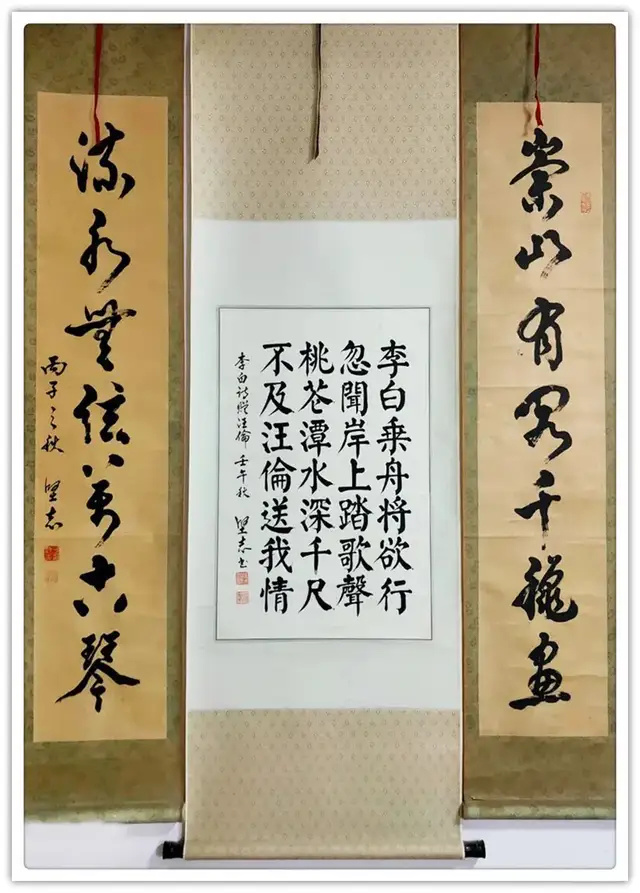 崇山有千龝畫
李白乘舟将欲行
忽聞岸上踏歌聲
桃花潭水深千尺
不及汪倫送我情
李白詩贈汪倫 壬午秋 堅志书
流水無弦萬古琴
丙子之秋 堅志